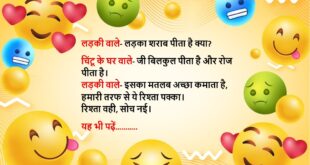 लड़की वाले- लड़का शराब पीता है क्या?
चिंटू के घर वाले- जी बिलकुल पीता है और रोज
पीता है।
लड़की वाले- इसका मतलब अच्छा कमाता है,
हमारी तरफ से ये रिश्ता पक्का।
रिश्ता वही, सोच नई।
यह भी पढ़ें...........